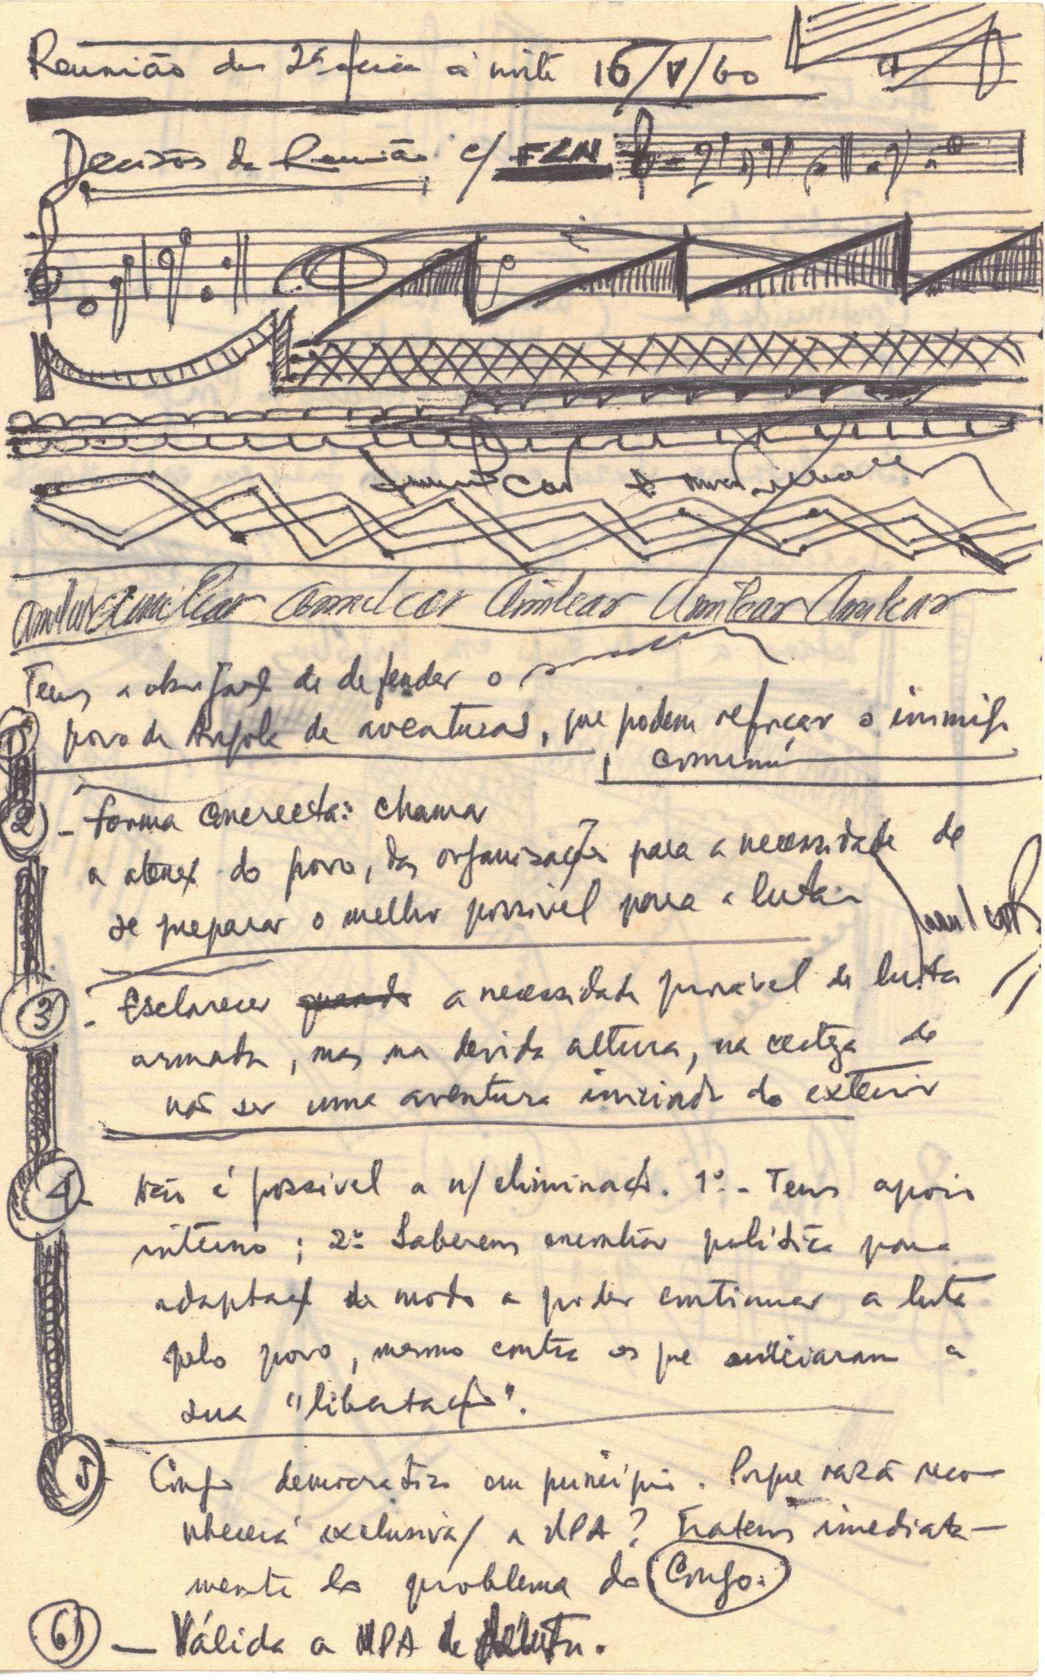 Reunião de 2ª feira à noite 16/V/60
Decisões da Reunião c/ FLN
Amilcar Amilcar Amilcar Amilcar Amilcar Amilcar
Temos a obrigaç. de defender o
1) povo de Angola de aventuras, que podem reforçar o inimigo
comum
2) - forma concreta: chamar
a atenç. do povo, das organizações para a necessidade de
se preparar o melhor possível para a luta.
3 - Esclarecer quando a necessidade provável de luta
armada, mas na devida altura, na certeza de
não ser uma aventura iniciada do exterior
4 - Não é possível a n/ eliminação. 1º - Temos apoio
interno; 2º Saberemos encontrar política para
adaptaç. de modo a poder continuar a luta
pelo povo, mesmo contra os que iniciaram a
sua "libertação".
5 - Congo democratico em princípio. Porque razão reco-
nhecerá exclusiva/ a UPA? Tratemos imediata-
mente do problema do Congo.
6) - Válida a UPA de